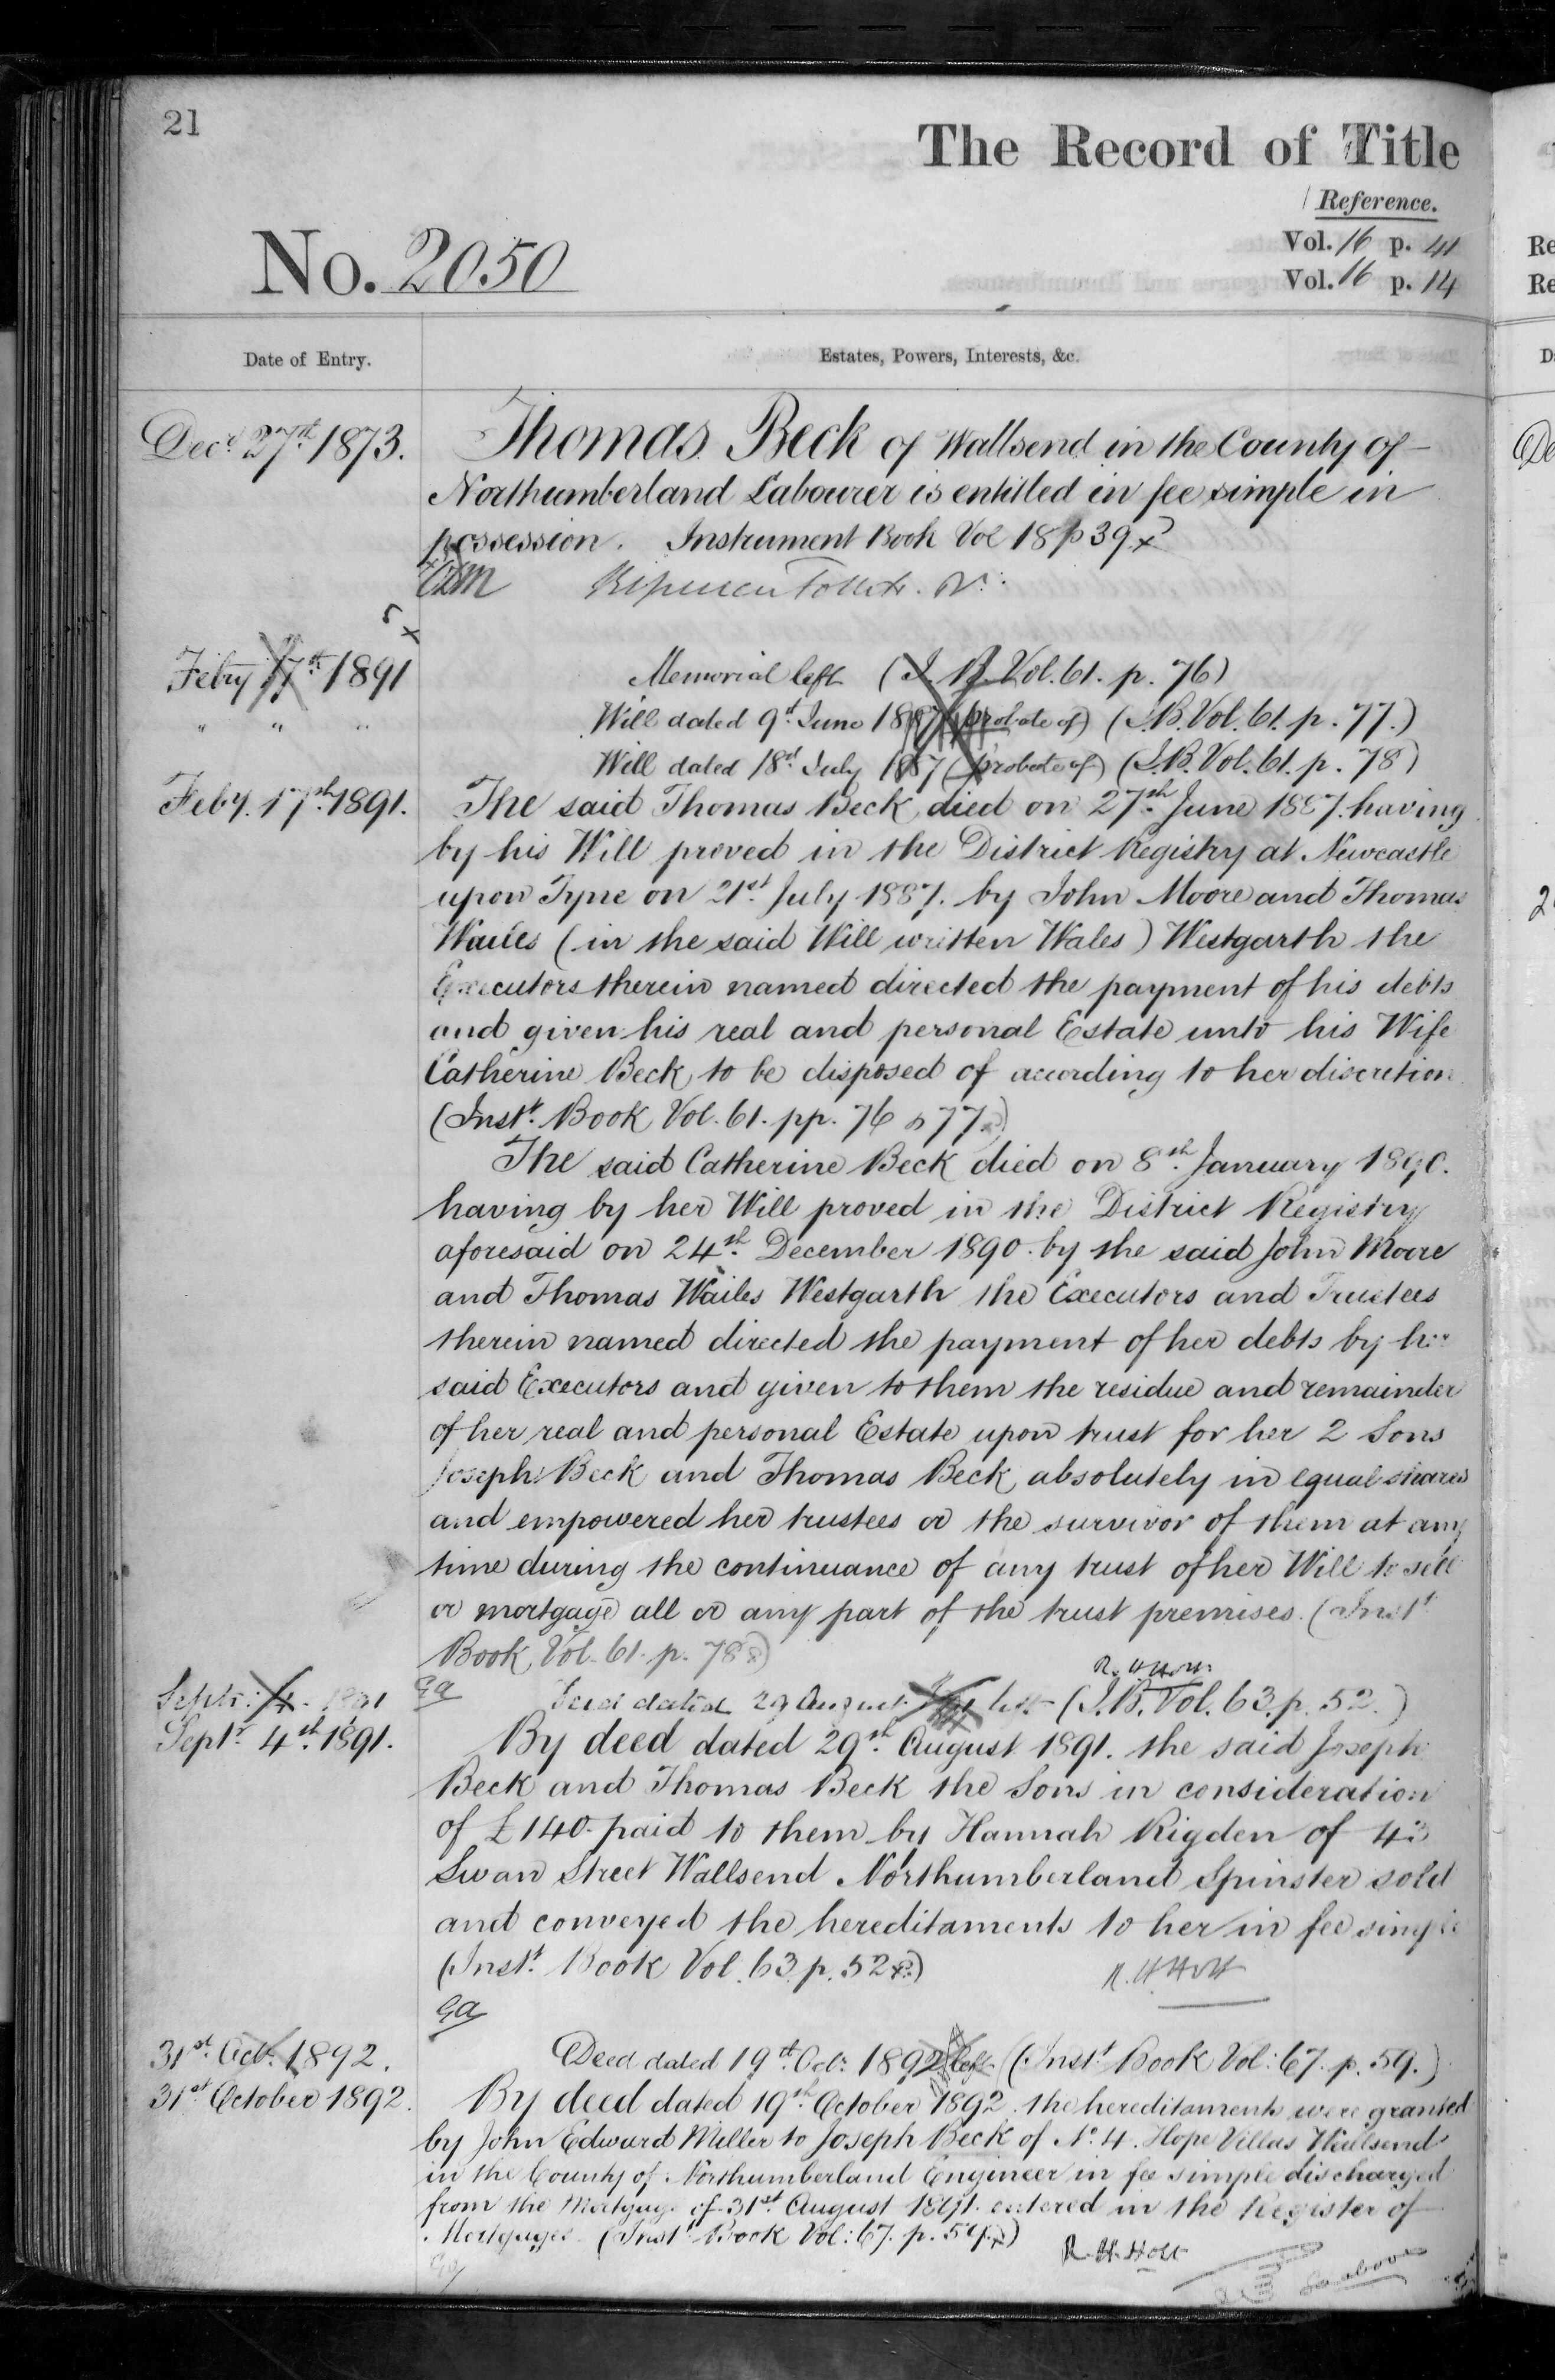 21
The Record of Title
Reference.
Vol. 16 p. 41
No. 2050
Vol. 16 p. 14
Date of Entry.
Estates, Powers, Interests, &c.
Decr 27th 1873.
Thomas Beck of Wallsend in the County of
Northumberland Labourer is entitled in fee simple in
possession. Instrument Book Vol 18 p 39
Feby 17th 1891
Memorial left (I. B. Vol. 61. p. 76)
" " "
Will dated 9th June 1887 (probate of) (I.B. Vol. 61. p. 77.)
Will dated 18th July 1887 (probate of) (I.B. Vol. 61. p. 78)
Feby. 17th 1891.
The said Thomas Beck died on 27th June 1887. having
by his Will proved in the District Registry at Newcastle
upon Tyne on 21st July 1887. by John Moore and Thomas
Wailes (in the said Will written Wales) Westgarth the
Executors therein named directed the payment of his debts
and given his real and personal Estate unto his Wife
Catherine Beck to be disposed of according to her discretion
(Instt. Book Vol. 61. pp. 76 & 77.)
The said Catherine Beck died on 8th January 1890.
having by her Will proved in the District Registry
aforesaid on 24th December 1890. by the said John Moore
and Thomas Wailes Westgarth the Executors and Trustees
therein named directed the payment of her debts by her
said Executors and given to them the residue and remainder
of her real and personal Estate upon trust for her 2 Sons
Joseph Beck and Thomas Beck absolutely in equal shares
and empowered her trustees or the survivor of them at any
time during the continuance of any trust of her Will to sell
or mortgage all or any part of the trust premises. (Instt
Book Vol. 61. p. 78)
R. H Holt
Septr. 4. 1891
Ga
Deed dated 29 August 1891 left (I.B. Vol. 63. p. 52.)
Septr 4th 1891.
By deed dated 29th August 1891. the said Joseph
Beck and Thomas Beck the Sons in consideration
of £140. paid to them by Hannah Rigden of 43
Swan Street Wallsend Northumberland Spinster sold
and conveyed the hereditaments to her in fee simple
(Instt. Book Vol. 63. p. 52)
R. H Holt
Ga
31st Oct. 1892.
Deed dated 19th Octr 1892 left (Instt Book Vol: 67. p. 59.)
31st October 1892.
By deed dated 19th October 1892. the hereditaments were granted
by John Edward Miller to Joseph Beck of No. 4. Hope Villas Wallsend
in the County of Northumberland Engineer in fee simple discharged
from the Mortgage of 31st August 1891. entered in the Register of
Mortgages. (Instt Book Vol: 67. p. 59.)
R. H. Holt
Ga
See above